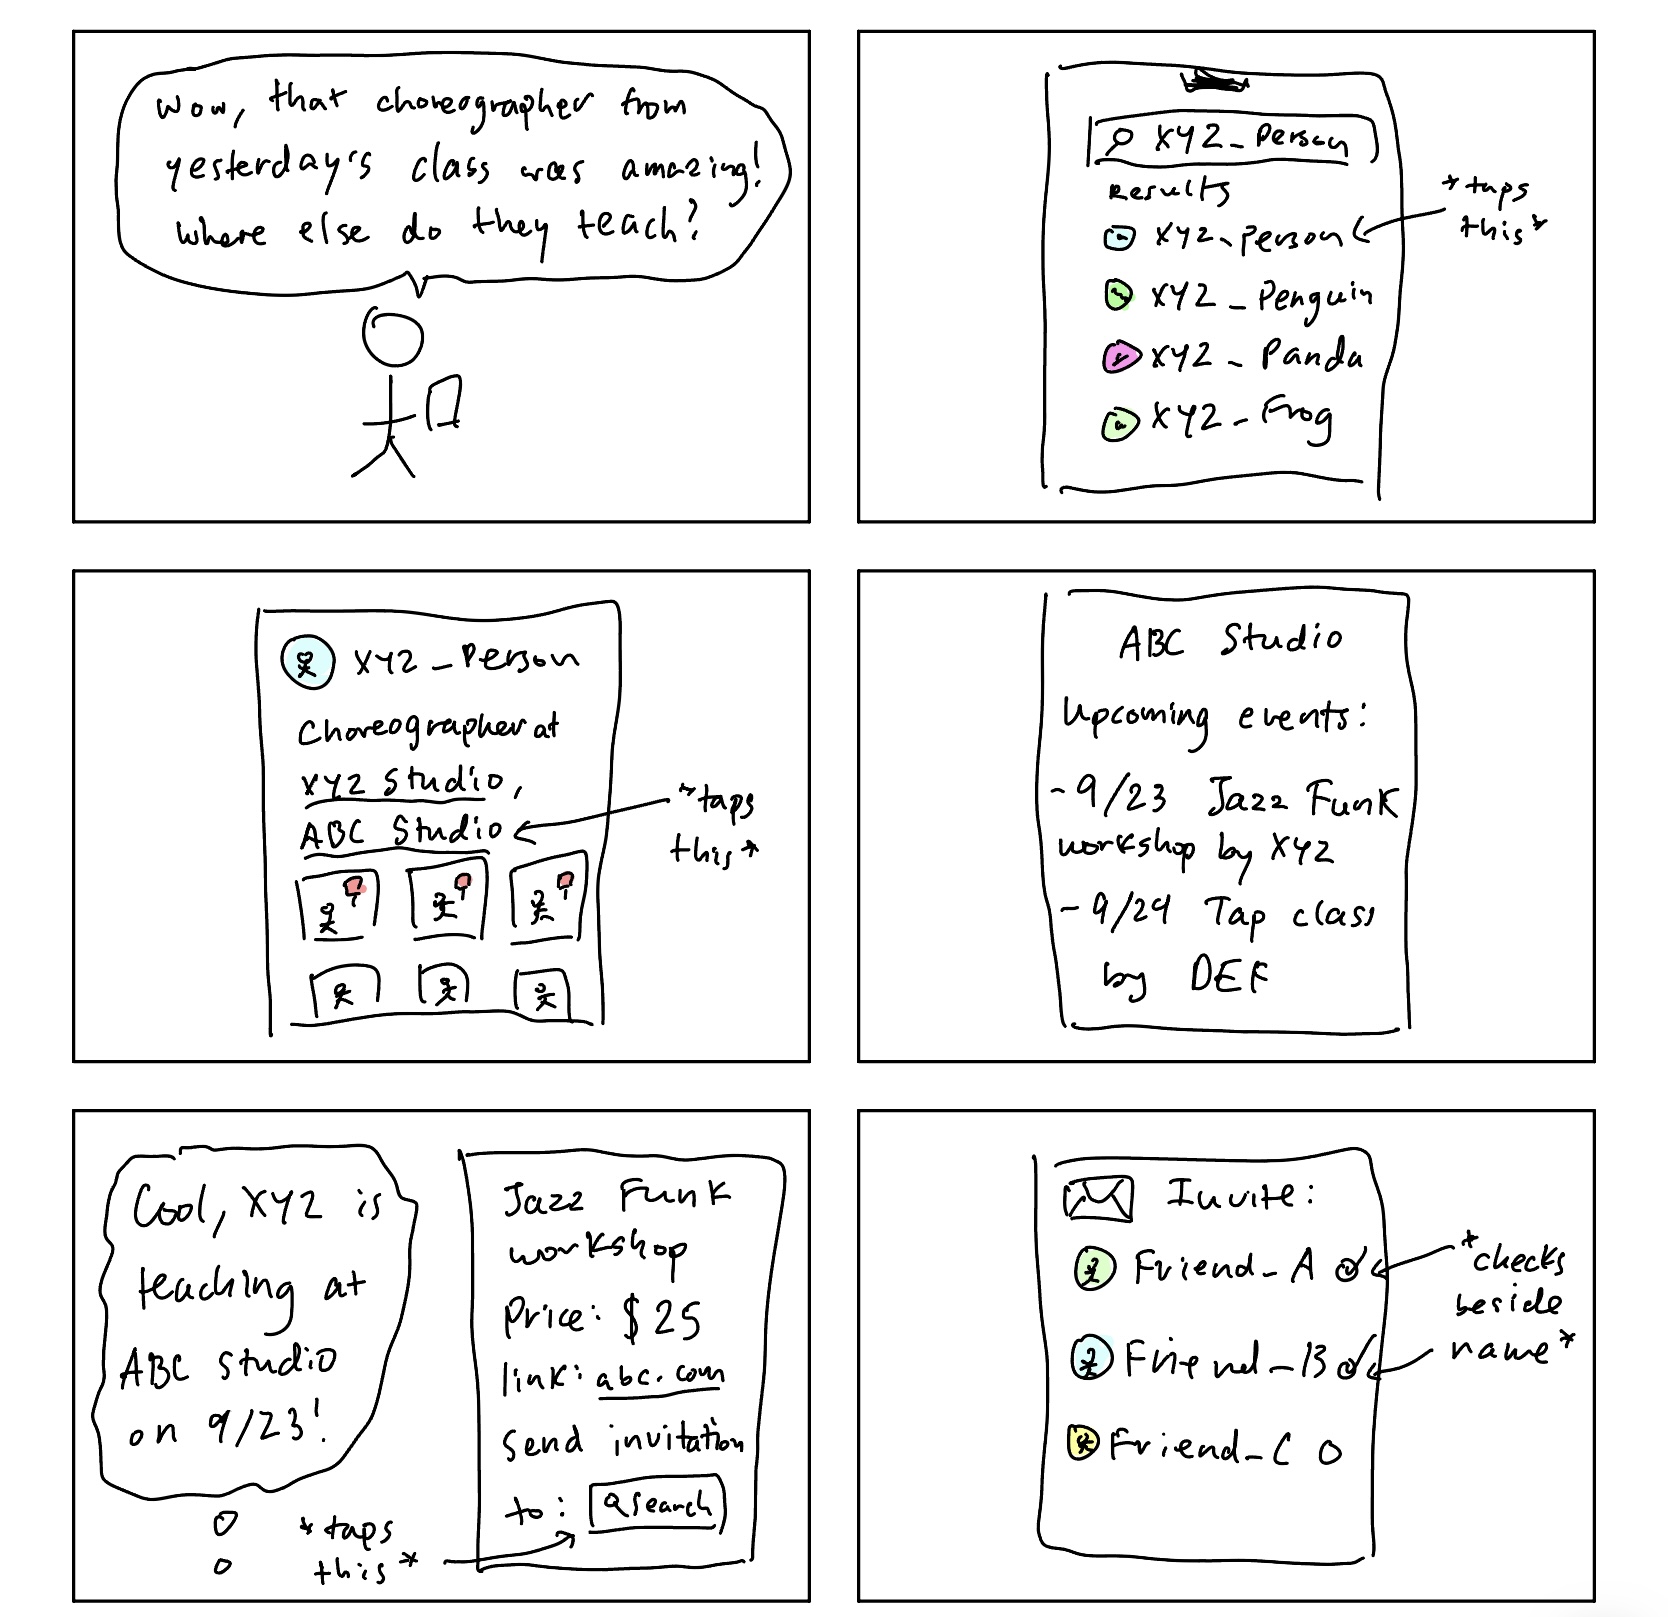 Wow, that choreographer from
yesterday's class was amazing!
Where else do they teach?
XYZ_Person
Results
XYZ_Person
XYZ_Penguin
XYZ_Panda
XYZ_Frog
*taps
this*
XYZ_Person
Choreographer at
XYZ Studio,
ABC Studio
*taps
this*
ABC Studio
Upcoming events:
- 9/23 Jazz Funk
workshop by XYZ
- 9/24 Tap class
by DEF
Cool, XYZ is
teaching at
ABC Studio
on 9/23!
*taps
this*
Jazz Funk
workshop
Price: $25
link: abc.com
Send invitation
to: search
Invite:
Friend_A
Friend_B
Friend_C
*checks
beside
name*